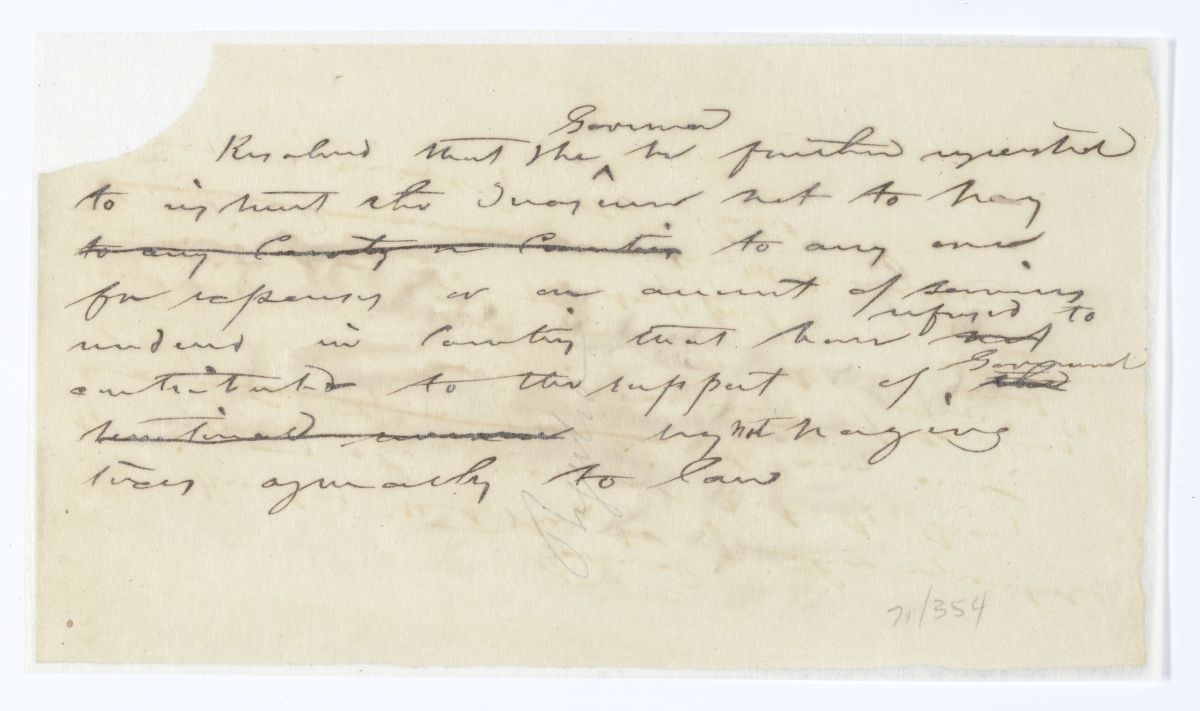 Governor
Resolved that the ^ be further requested
to instruct the Treasurer not to pay
to any County or Counties to any one
for expenses or on account of services
refused to
rendered in Counties that have not
Government
contributed to the support of the
territorial by not paying
taxes agreeably to law
71/354